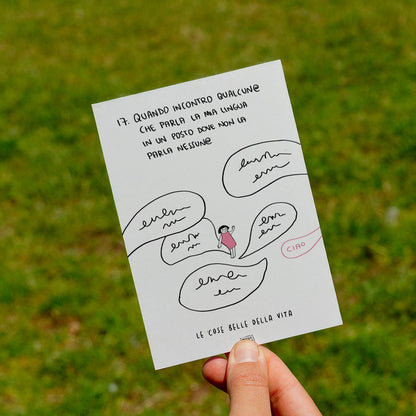 17. QUANDO INCONTRO QUALCUN@
CHE PARLA LA MIA LINGUA
IN UN POSTO DOVE NON LA
PARLA NESSUN@
CIAO
LE COSE BELLE DELLA VITA